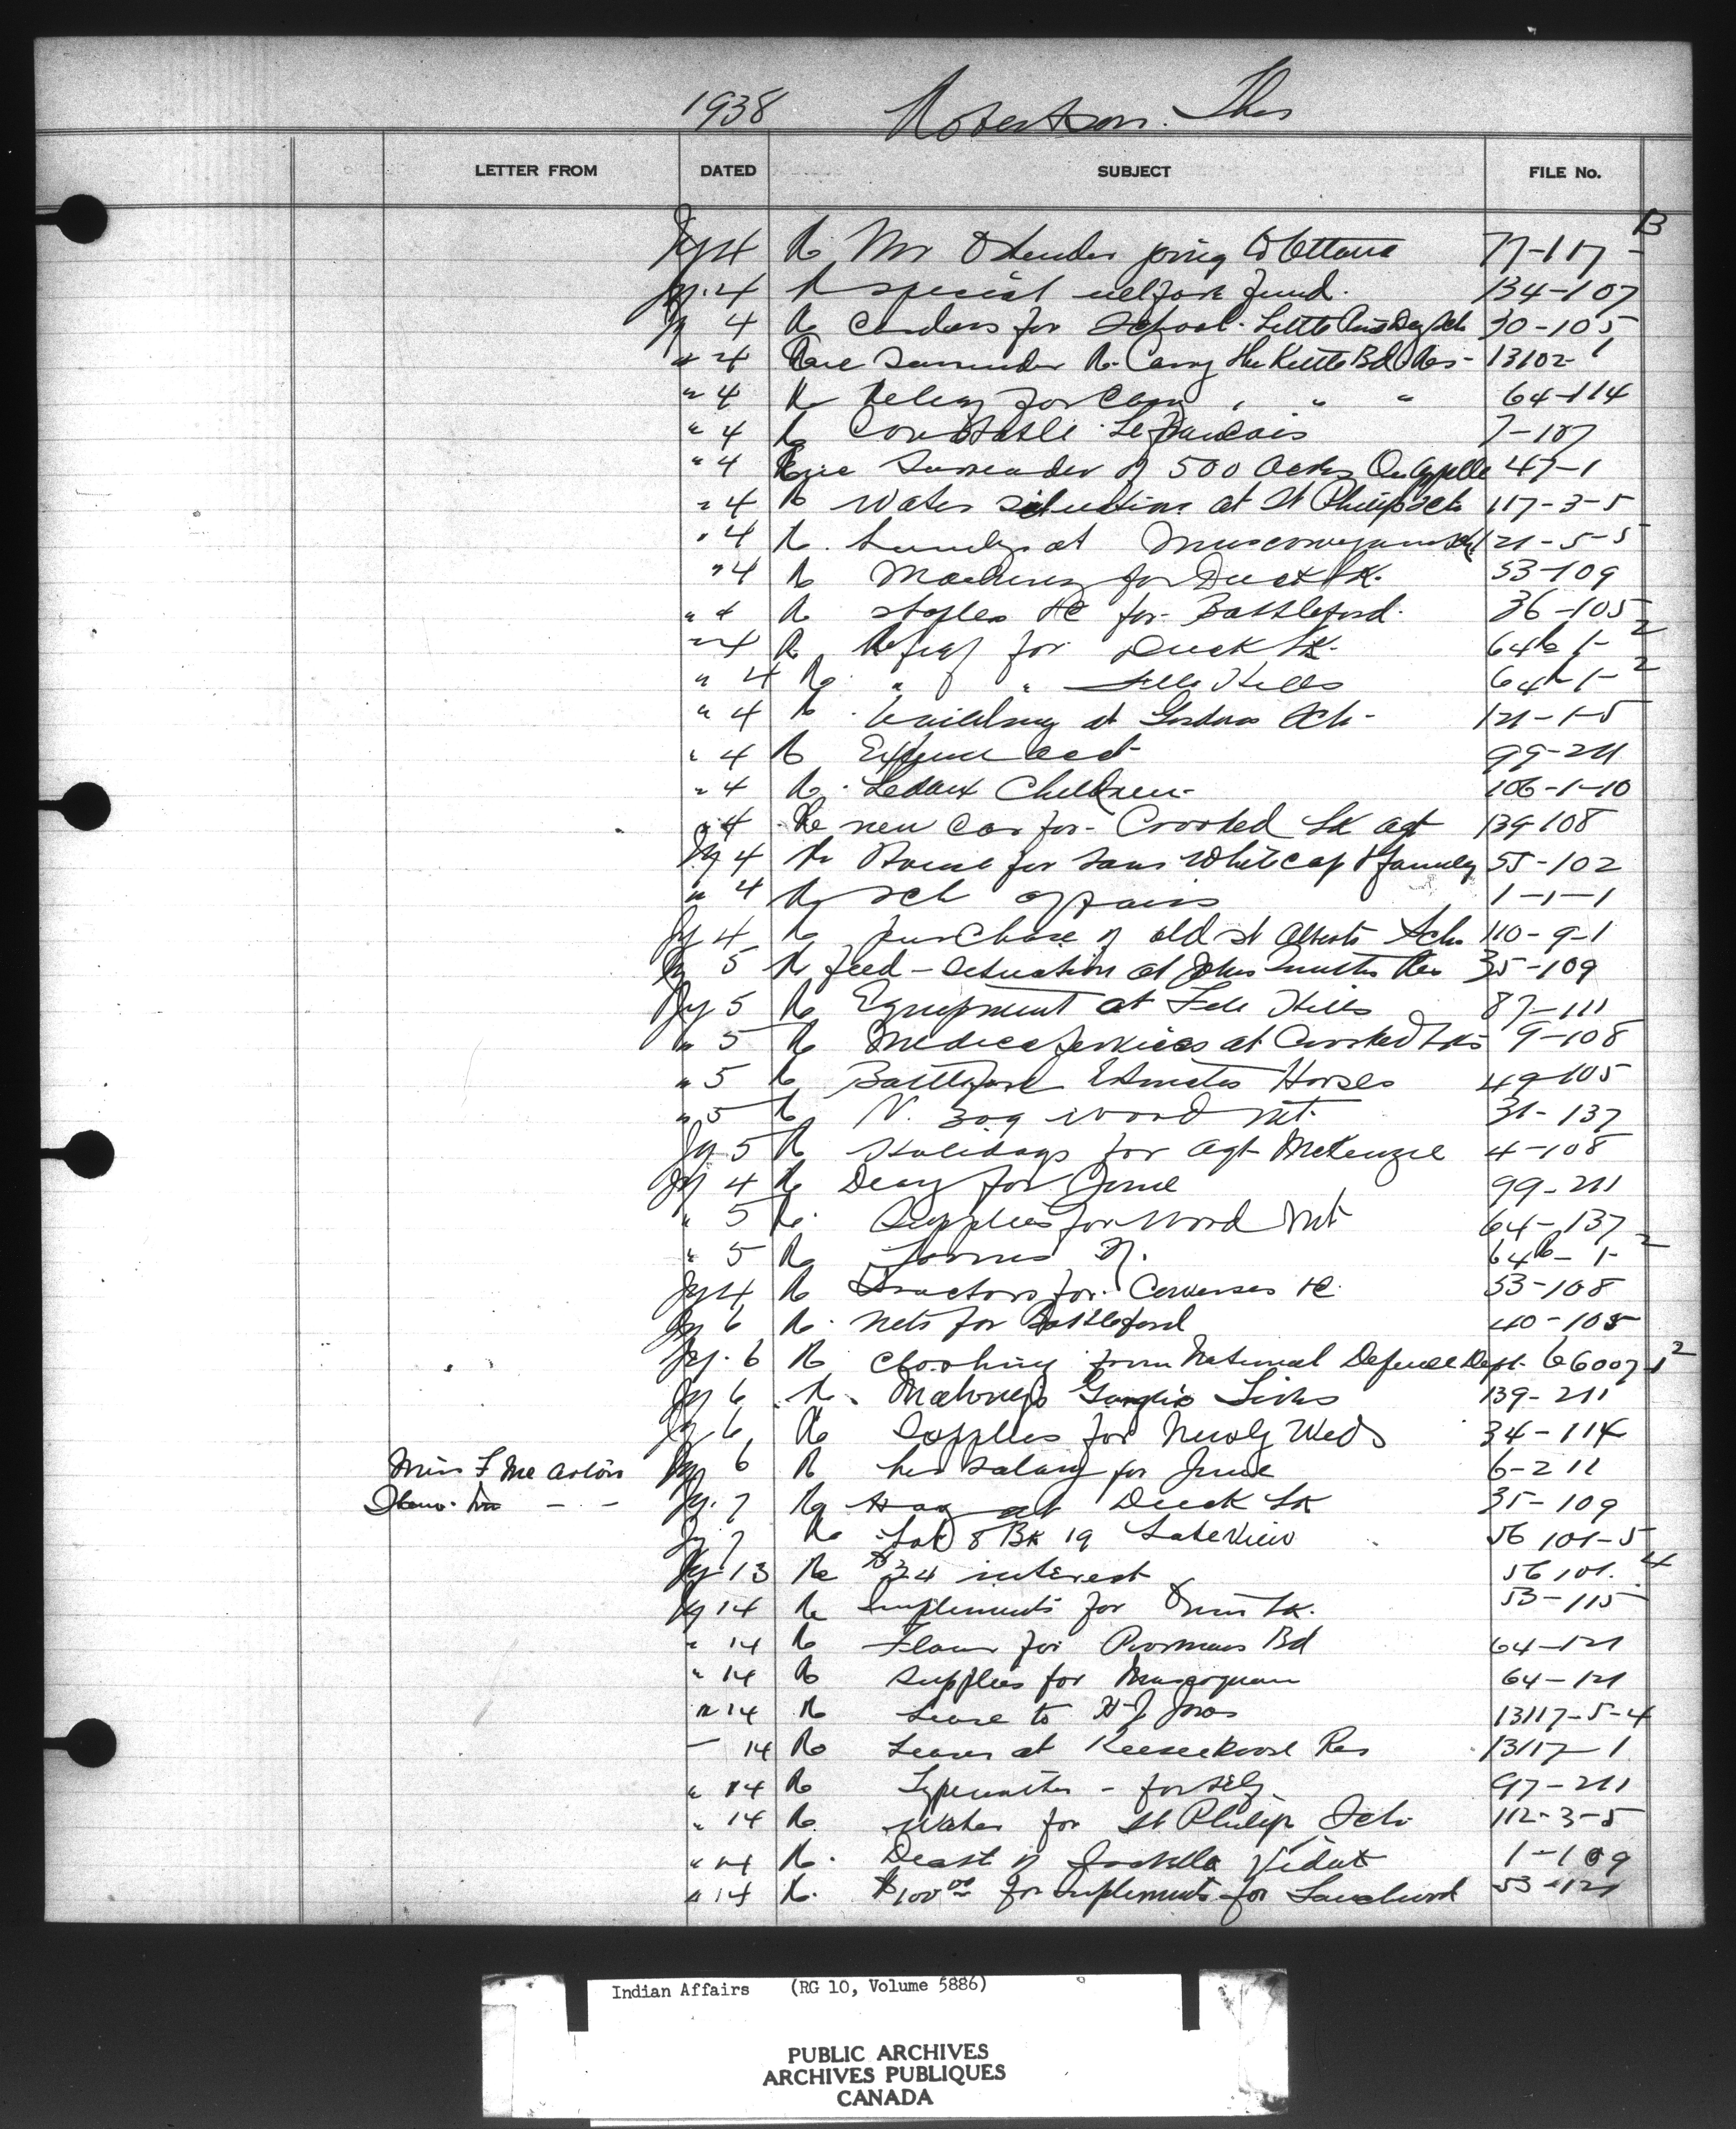 1938 Robertson. Thos
LETTER FROM DATED SUBJECT FILE No.
B
Jy 4 Re Mr Ostrander going to Ottawa 77-117 -
Jy. 4 Re special welfare fund. 134-107
Jy 4 Re for School. Little Pine Day Sch 30-105
" 4 Re Surrender Re. Carry The Kettle Bd Res- 13102-1
" 4 Re for " " 64-114
" 4 Re Constable Lefrancois 7-107
" 4 Re Surrender of 500 Acres Qu'Appelle 47-1
" 4 Re Water situation at St Philips Sch 117-3-5
" 4 Re. at Muscowequan Sch 121-5-5
" 4 Re Machinery for Duck Lk. 53-109
" 4 Re staples &c for Battleford. 36-105
" 4 Re Relief for Duck Lk. 64b 1-2
" 4 Re " " File Hills 64b-1-2
" 4 Re building at Gordons Sch- 121-1-5
" 4 Re Expense acct 99-211
" 4 Re. Ledoux Children- 106-1-10
" 4 Re new Car for Crooked Lk agt 139-108
Jy 4 Re House for Sam Whitecap & family 55-102
" 4 Re Sch affairs 1-1-1
Jy 4 Re purchase of old St Alberts Sch 110-9-1
Jy 5 Re feed - situation at John Smiths Res 35-109
Jy 5 Re Equipment at File Hills 87-111
" 5 Re Medical services at Crooked Lks 9-108
" 5 Re Battleford Estimates Horses 49-105
" 5 Re V. 309 Wood Mt. 31-137
Jy 5 Re Holidays for Agt McKenzie 4-108
Jy 4 Re Diary for June 99-211
" 5 Re. Supplies for Wood Mt 64-137
" 5 Re 64b-1-2
Jy 4 Re Tractors for &c. 53-108
Jy 6 Re. Nets for Battleford 40-105
Jy. 6 Re clothing from National Defence Dept. 66007-1 2
Jy 6 Re. 139-211
Jy 6 Re Supplies for Newly Weds 34-114
Miss F Mc Jy 6 Re her Salary for June 6-211
- - Jy. 7 Re Hay at Duck Lk 35-109
Jy 7 Re Lot 8 Bk 19 Lakeview 56 101-5
Jy 13 Re $34 interest 56 101. 4
Jy 14 Re Implements for Lk. 53-115
" 14 Re Flour for Poormans Bd 64-121
" 14 Re Supplies for Muscowequan 64-121
" 14 Re Lease to H J 13117-5-4
" 14 Re Leases at Keeseekoose Res 13117-1
" 14 Re Typewriter - for self 97-211
" 14 Re. Water for St Philip Sch. 112-3-5
" 14 Re. Death of Vidal 1-109
" 14 Re. $100 00 for Implements for 53-121
Indian Affairs (RG 10, Volume 5886)
PUBLIC ARCHIVES
ARCHIVES PUBLIQUES
CANADA